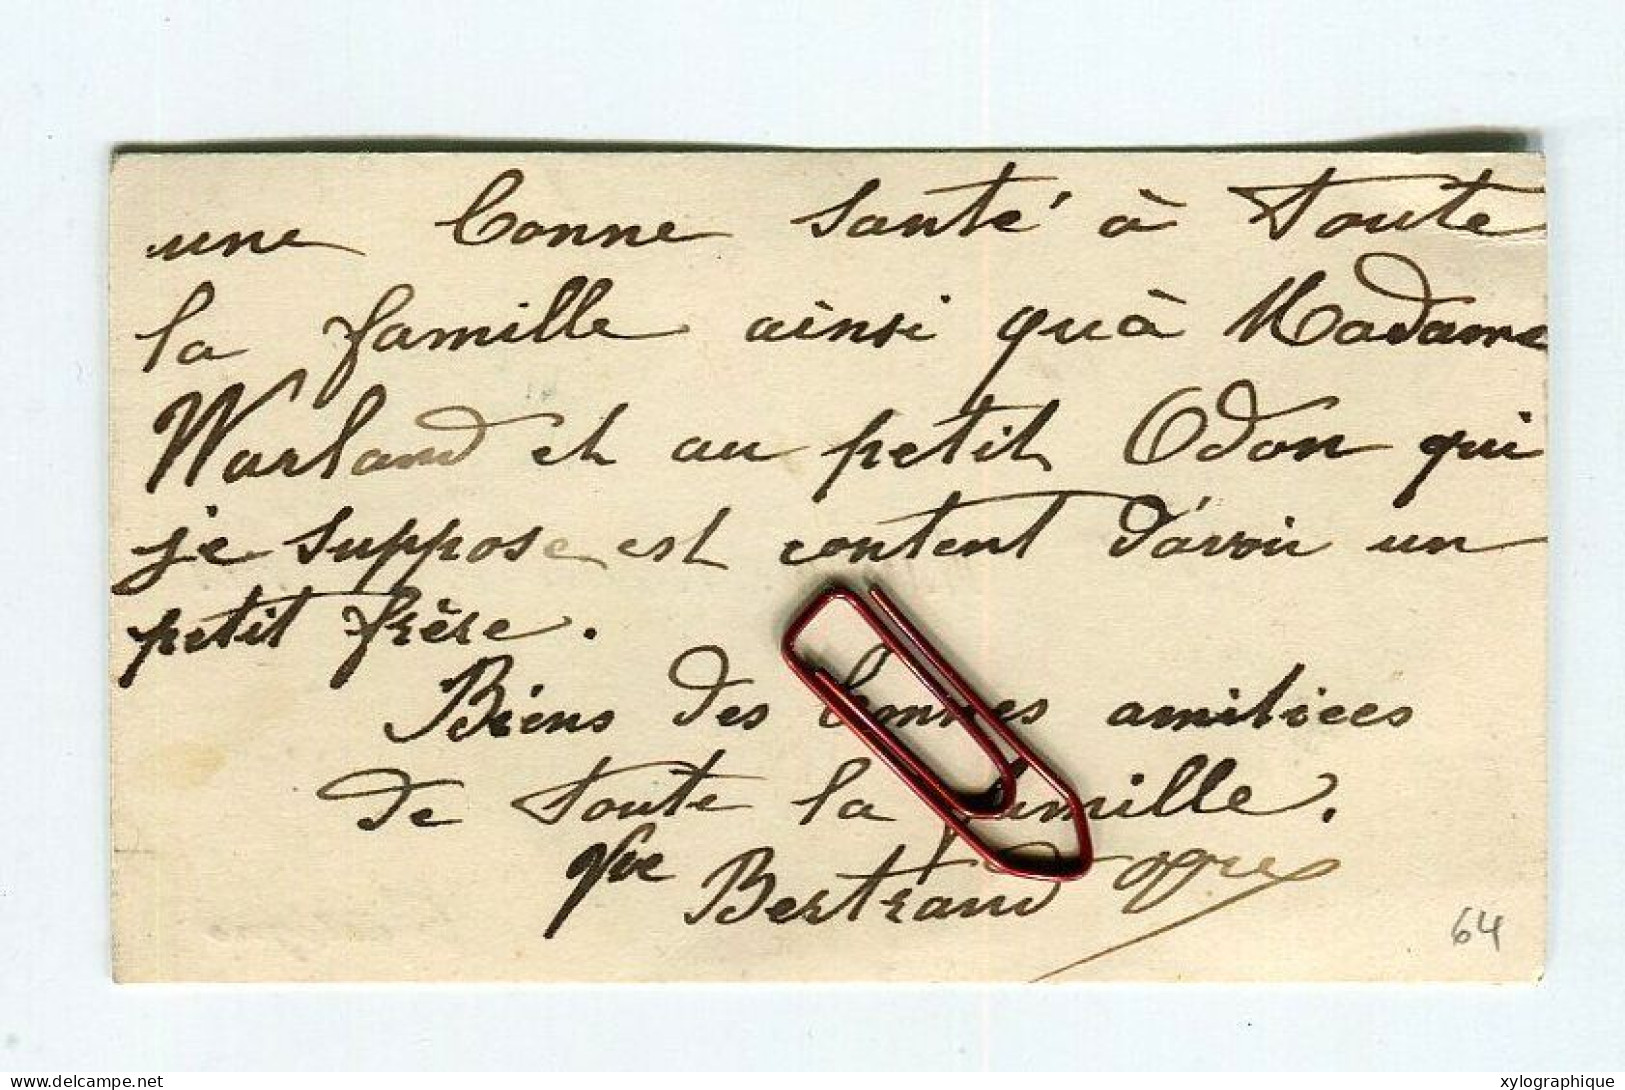 une bonne santé à toute
la famille ainsi qu'à Madame
Warland et au petit Odon qui
je suppose est content d'avoir un
petit frère.
Biens des bonnes amitiees
de toute la famille.
Bertrand
64
www.delcampe.net
xylographique